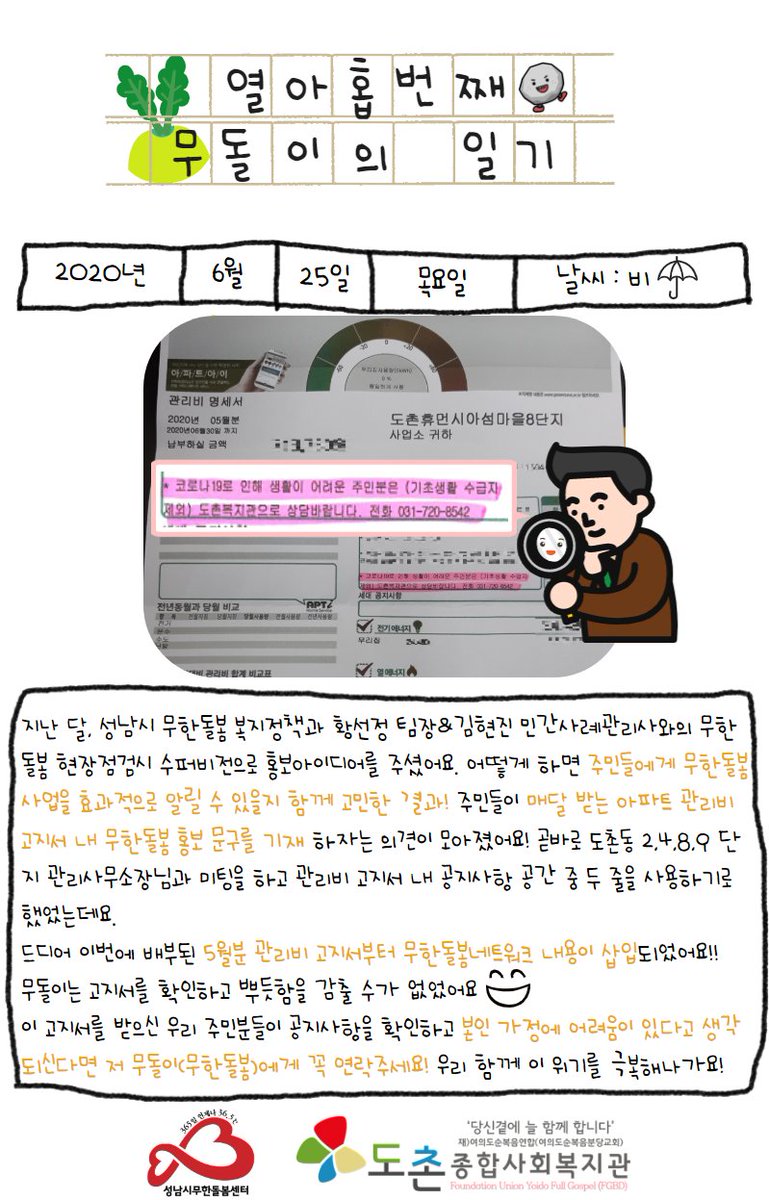 열아홉번째
무돌이의 일기
2020년 6월 25일 목요일 날씨 : 비
아/파/트/아/이
-20 0 +20
관리비 명세서
2020년 05월분
2020년06월30일 까지
납부하실 금액
도촌휴먼시아섬마을8단지
사업소 귀하
* 코로나19로 인해 생활이 어려운 주민분은 (기초생활 수급자
제외) 도촌복지관으로 상담바랍니다. 전화 031-720-8542
* 코로나19로 인해 생활이 어려운 주민분은 (기초생활 수급자
제외) 도촌복지관으로 상담바랍니다. 전화 031-720-8542
세대 공지사항
APTi
전년동월과 당월 비교
전기에너지
우리집
열에너지
관리비 합계 비교표
지난 달, 성남시 무한돌봄 복지정책과 황선정 팀장&김현진 민간사례관리사와의 무한
돌봄 현장점검시 수퍼비전으로 홍보아이디어를 주셨어요. 어떻게 하면 주민들에게 무한돌봄
사업을 효과적으로 알릴 수 있을지 함께 고민한 결과! 주민들이 매달 받는 아파트 관리비
고지서 내 무한돌봄 홍보 문구를 기재 하자는 의견이 모아졌어요! 곧바로 도촌동 2,4,8,9 단
지 관리사무소장님과 미팅을 하고 관리비 고지서 내 공지사항 공간 중 두 줄을 사용하기로
했었는데요.
드디어 이번에 배부된 5월분 관리비 고지서부터 무한돌봄네트워크 내용이 삽입되었어요!!
무돌이는 고지서를 확인하고 뿌듯함을 감출 수가 없었어요
이 고지서를 받으신 우리 주민분들이 공지사항을 확인하고 본인 가정에 어려움이 있다고 생각
되신다면 저 무돌이(무한돌봄)에게 꼭 연락주세요! 우리 함께 이 위기를 극복해나가요!
365일 언제나 36.5도
성남시무한돌봄센터
'당신곁에 늘 함께 합니다'
재)여의도순복음연합(여의도순복음분당교회)
도촌종합사회복지관
Foundation Union Yoido Full Gospel (FGBD)